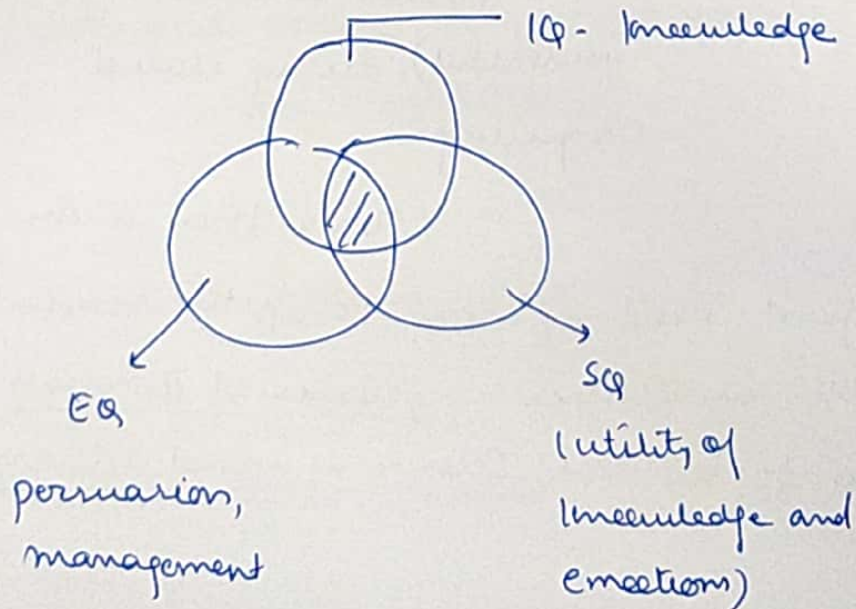 IQ - knowledge
EQ
persuasion,
management
SQ
(utility of
knowledge and
emotions)